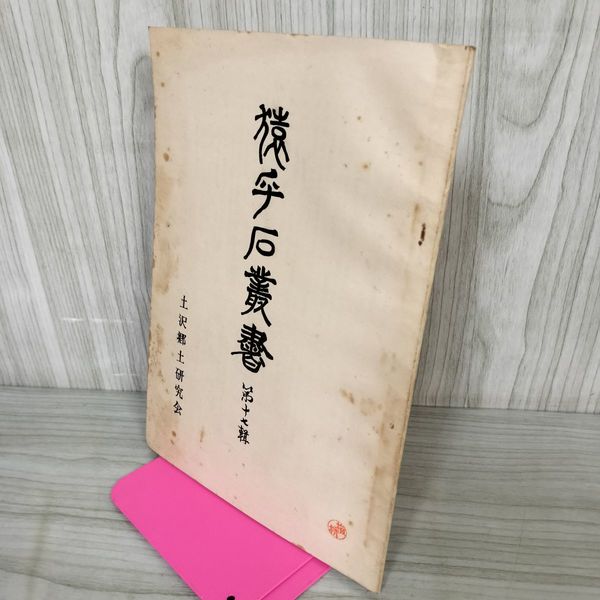 猿手石叢書
第十七輯
土沢郷土研究会